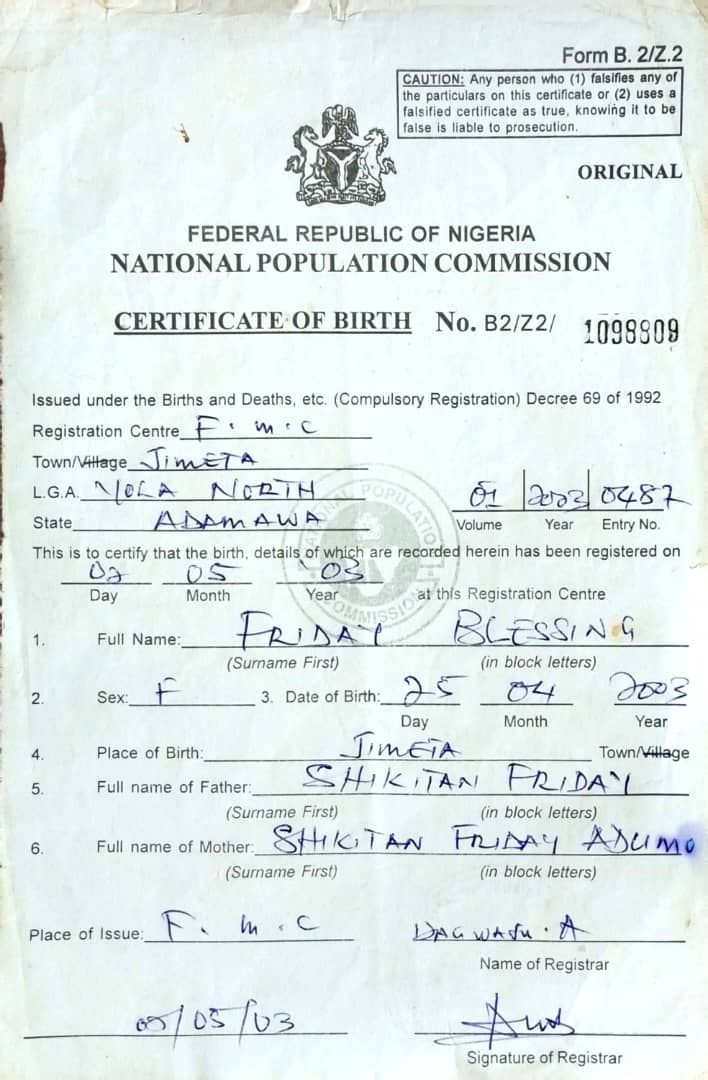 Form B. 2/Z.2
CAUTION: Any person who (1) falsifies any of
the particulars on this certificate or (2) uses a
falsified certificate as true, knowing it to be
false is liable to prosecution.
ORIGINAL
FEDERAL REPUBLIC OF NIGERIA
NATIONAL POPULATION COMMISSION
CERTIFICATE OF BIRTH No. B2/Z2/ 1098809
Issued under the Births and Deaths, etc. (Compulsory Registration) Decree 69 of 1992
Registration Centre F.M.C
Town/Village JIMETA
L.G.A. YOLA NORTH 01 2003 0487
State ADAMAWA Volume Year Entry No.
This is to certify that the birth, details of which are recorded herein has been registered on
02 05 '03
Day Month Year at this Registration Centre
1. Full Name: FRIDAY BLESSING
(Surname First) (in block letters)
2. Sex: F 3. Date of Birth: 25 04 2003
Day Month Year
4. Place of Birth: JIMETA Town/Village
5. Full name of Father: SHIKITAN FRIDAY
(Surname First) (in block letters)
6. Full name of Mother: SHIKITAN FRIDAY ADUMO
(Surname First) (in block letters)
Place of Issue: F.M.C
Name of Registrar
/05/03
Signature of Registrar
NATIONAL POPULATION COMMISSION